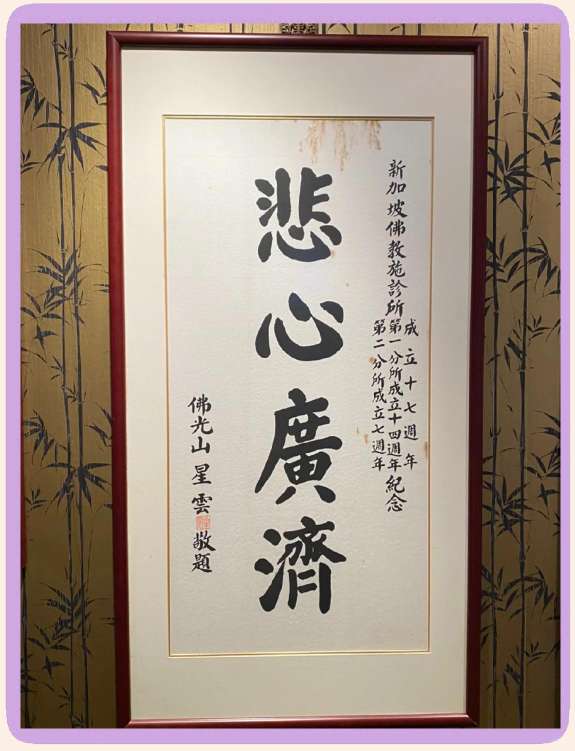 新加坡佛教施診所
成立十七週年
第一分所成立十四週年紀念
第二分所成立七週年
悲心廣濟
佛光山星雲敬題